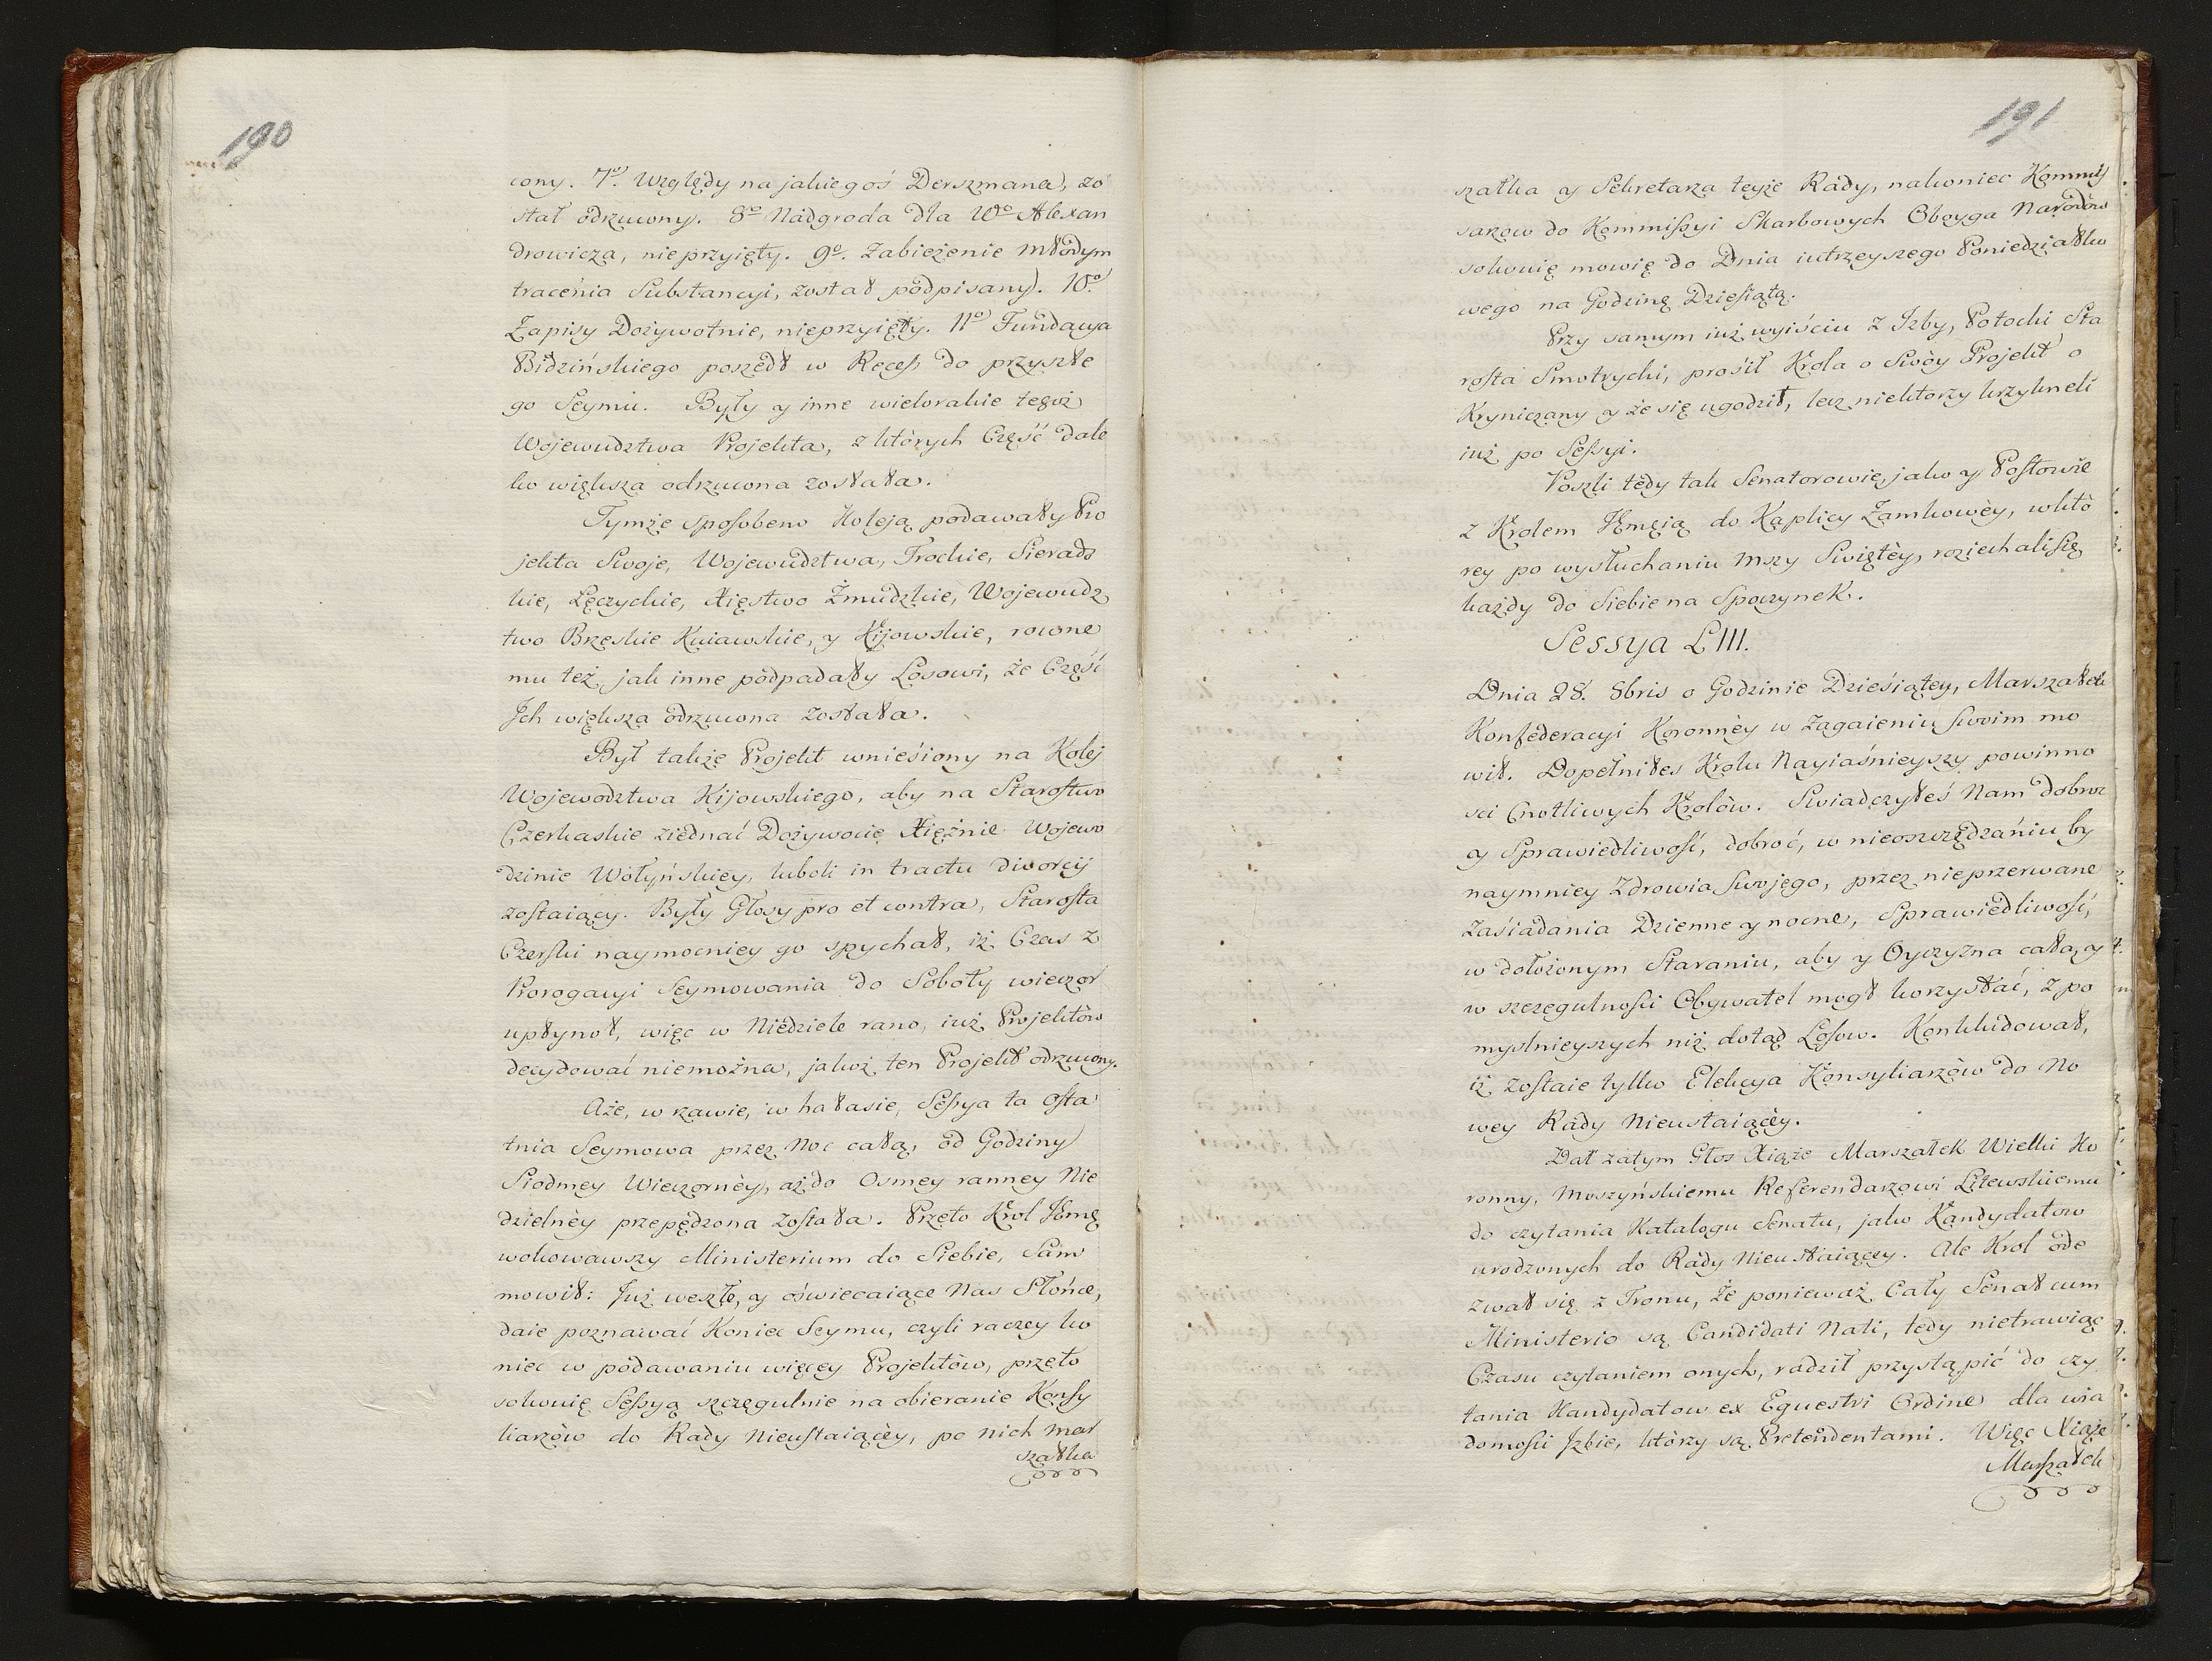 190
cony. 7º. Względy na jakiegoś Derszmana, zo
stał odrzucony. 8º Nadgroda dla Wº Alexan
drowicza, nieprzyięty. 9º. Zabieżenie młodym
tracenia Substancyi, został podpisany. 10º.
Zapisy Dożywotnie, nieprzyięty. 11º Fundacya
Bidzińskiego poszedł w Recess do przyszłe
go Seymu. Były y inne wielorakie tegoż
Wojewudztwa Projekta, z których Część dale
ko większa odrzucona została.
Tymże sposobem Koleją podawały Pro
jekta Swoje, Wojewudztwa, Trockie, Sieradz
kie, Łęczyckie, Xięstwo Żmudzkie, Wojewudz
two Brzeskie Kuiawskie, y Kijowskie, rowne
mu też jak inne podpadały Losowi, że Część
Ich większa odrzucona została.
Był także Projekt wnieśiony na Kolej
Wojewodztwa Kijowskiego, aby na Starostwo
Czerkaskie ziednać Dożywocie Xiężnie Wojewo
dzinie Wołyńskiey, luboli in tractu divorcij
zostaiący. Były Głosy pro et contra, Starosta
Czerski naymocniey go spychał, iż Czas z
Prorogacyi Seymowania do Soboty wieczor
upłynoł, więc w Niedziele rano, iuż Projektów
decydować niemożna, jakoż ten Projekt odrzucony.
Aże, w rzawie, w hałasie, Sessya ta osta
tnia Seymowa przez Noc całą, od Godziny
Siodmey Wieczorney, aż do Osmey ranney Nie
dzielnèy przepędzona została. Przeto Krol Jmę
wokowawszy Ministerium do Siebie, Sam
mowił: Już weszłe, y oświecaiące Nas Słońce,
daie poznawać Koniec Seymu, czyli raczey ko
niec w podawaniu więcey Projektów, przeto
solwuię Sessyą szczegulnie na obieranie Konsy
liarzów do Rady Nieustaiącèy, po nich mar
szałka
191
szałka y Sekretarza teyże Rady, nakoniec Kommis
sarzow do Kommissyi Skarbowych Oboyga Narodów
solwuię mowię do Dnia iutrzeyszego Poniedziałko
wego na Godzinę Dziesiątą.
Przy samym iuż wyiściu z Izby, Potocki Sta
rosta Smotrycki, prośił Krola o Swóy Projekt o
Kryniczany y że się ugodził, lecz niektorzy krzykneli
iuż po Sessyi.
Poszli tedy tak Senatorowie, jako y Posłowie
z Krolem Jmęią do Kaplicy Zamkowèy, w któ
rey po wysłuchaniu Mszy Swiętèy, roziechali się
każdy do Siebie na Spoczynek.
Sessya LIII.
Dnia 28. 8bris o Godzinie Dzieśiątey, Marszałek
Konfederacyi Koronnèy w Zagaieniu swoim mo
wił. Dopełniłes Krolu Nayiaśnieyszy powinno
sci Cnotliwych Krolów. Swiadczyłeś Nam dobroc
y Sprawiedliwość, dobroć, w nieoszczędzaniu by
naymniey Zdrowia Swojego, przez nieprzerwane
Zaśiadania Dzienne y nocne, Sprawiedliwość,
w dołożonym Staraniu, aby y Oyczyzna cała, y
w szczegulności Obywatel mogł korzystać, z po
myslnieyszych niż dotąd Losow. Konkludował,
iż zostaie tylko Elekcya Konsyliarzów do No
wey Rady Nieustaiącèy.
Dał zatym Głos Xiąże Marszałek Wielki Ko
ronny, Moszyńskiemu Referendarzowi Litewskiemu
do czytania Katalogu Senatu, jako Kandydatow
urodzonych do Rady Nieustaiącey. Ale Krol ode
zwał się z Tronu, Że ponieważ Cały Senat cum
Ministerio są Candidati Nati, tedy nietrawiąc
Czasu czytaniem onych, radził przystąpić do czy
tania Kandydatow ex Equestri Ordine dla wia
domości Jzbie, którzy są Pretendentami. Więc Xiąże
Marszałek